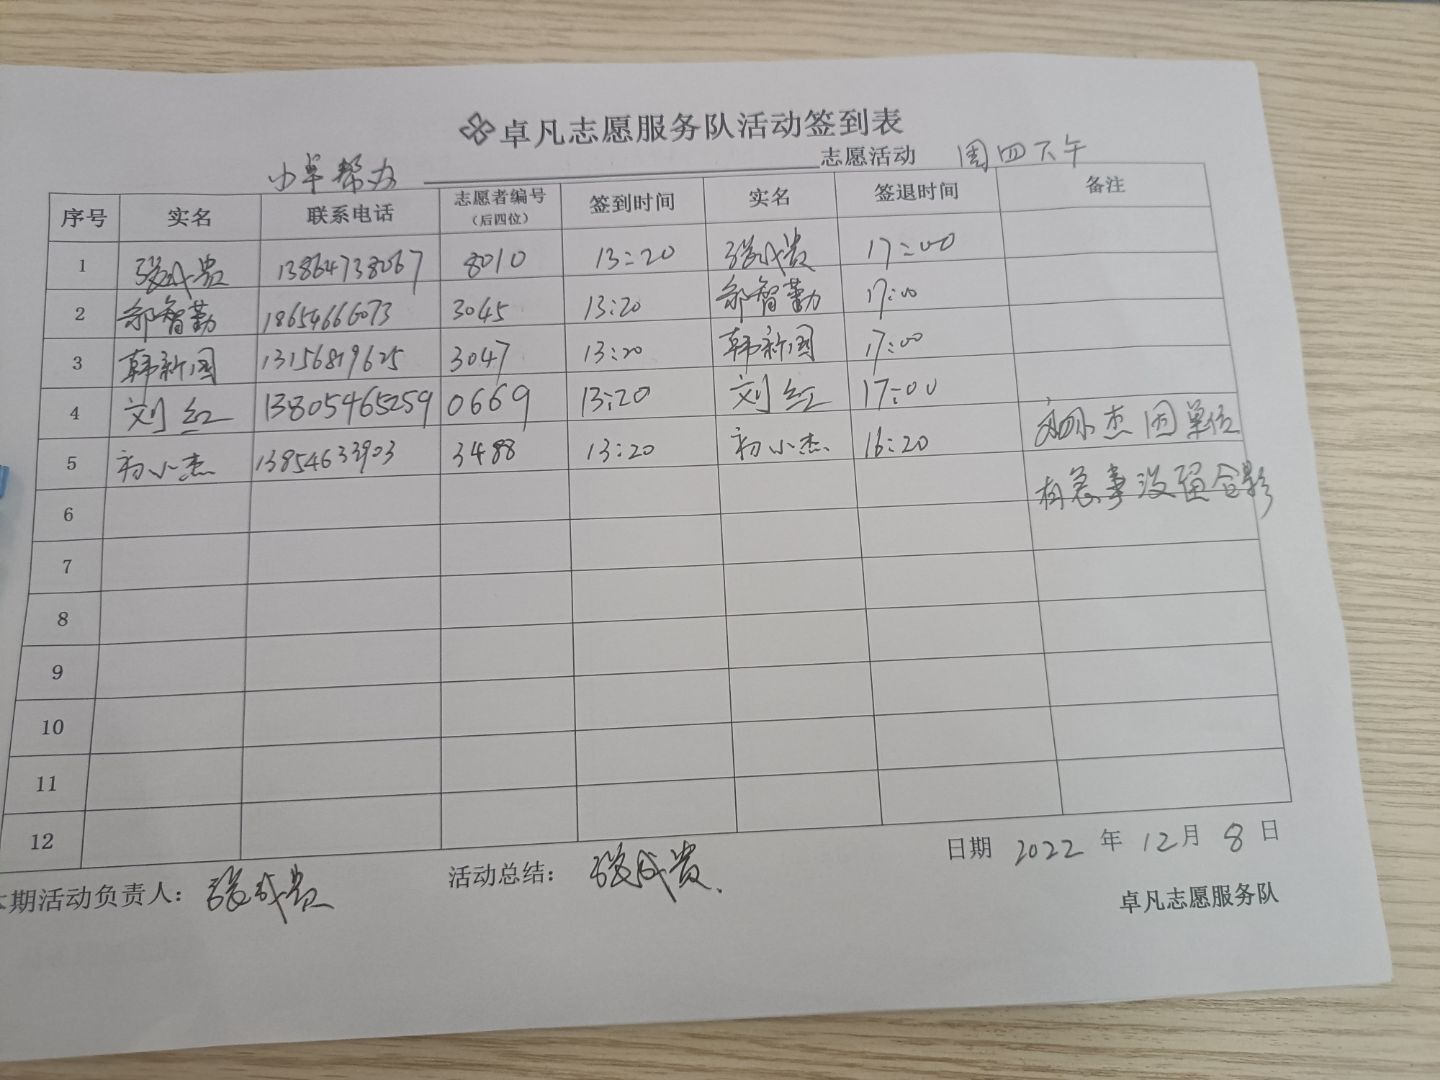 卓凡志愿服务队活动签到表
小卓帮办 志愿活动 周四下午
序号 实名 联系电话 志愿者编号（后四位） 签到时间 实名 签退时间 备注
1 张成贵 13864738067 8010 13:20 张成贵 17:00
2 郝智勤 18654666073 3045 13:20 郝智勤 17:00
3 韩新国 13156819625 3047 13:20 韩新国 17:00
4 刘红 13805465259 0669 13:20 刘红 17:00
5 初小杰 13854633903 3488 13:20 初小杰 16:20 初小杰因单位
6 有急事没留合影
7
8
9
10
11
12
本期活动负责人：张成贵 活动总结：张成贵 日期 2022 年 12 月 8 日
卓凡志愿服务队